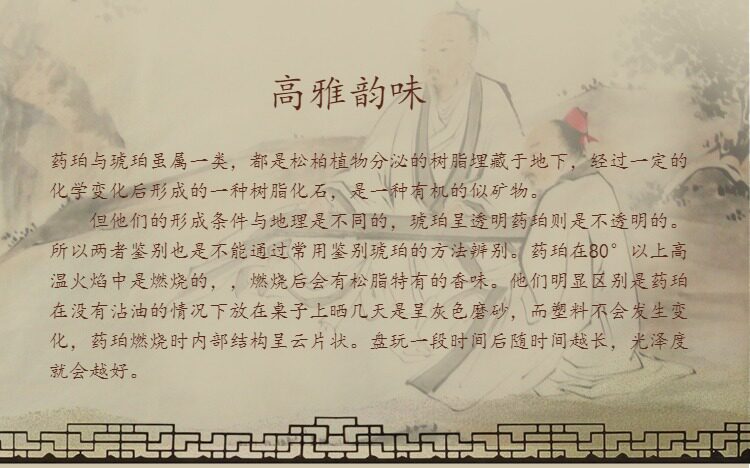 高雅韵味
药珀与琥珀虽属一类，都是松柏植物分泌的树脂埋藏于地下，经过一定的
化学变化后形成的一种树脂化石，是一种有机的似矿物。
但他们的形成条件与地理是不同的，琥珀呈透明药珀则是不透明的。
所以两者鉴别也是不能通过常用鉴别琥珀的方法辨别。药珀在80°以上高
温火焰中是燃烧的，，燃烧后会有松脂特有的香味。他们明显区别是药珀
在没有沾油的情况下放在桌子上晒几天是呈灰色磨砂，而塑料不会发生变
化，药珀燃烧时内部结构呈云片状。盘玩一段时间后随时间越长，光泽度
就会越好。